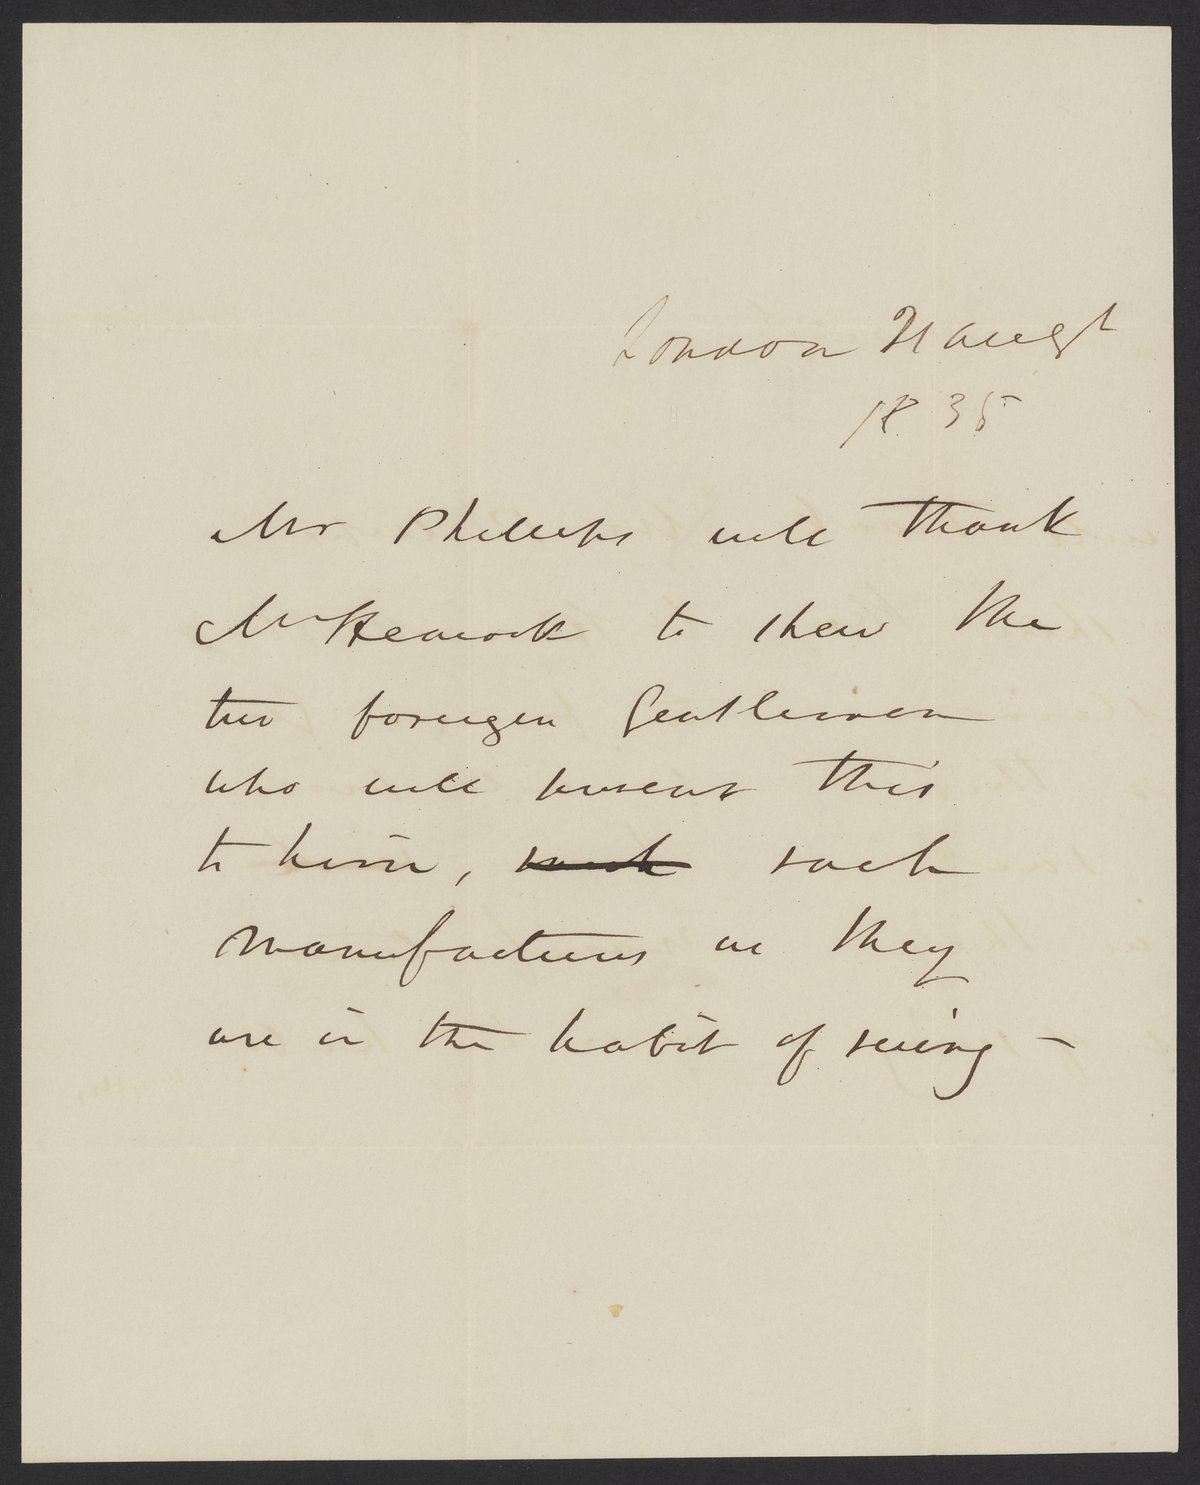 London 21 Augt
1835
Mr Phillips will thank
Mr to shew the
two foreigen Gentlemen
who will present this
to him, such
manufactures as they
are in the habit of seeing —